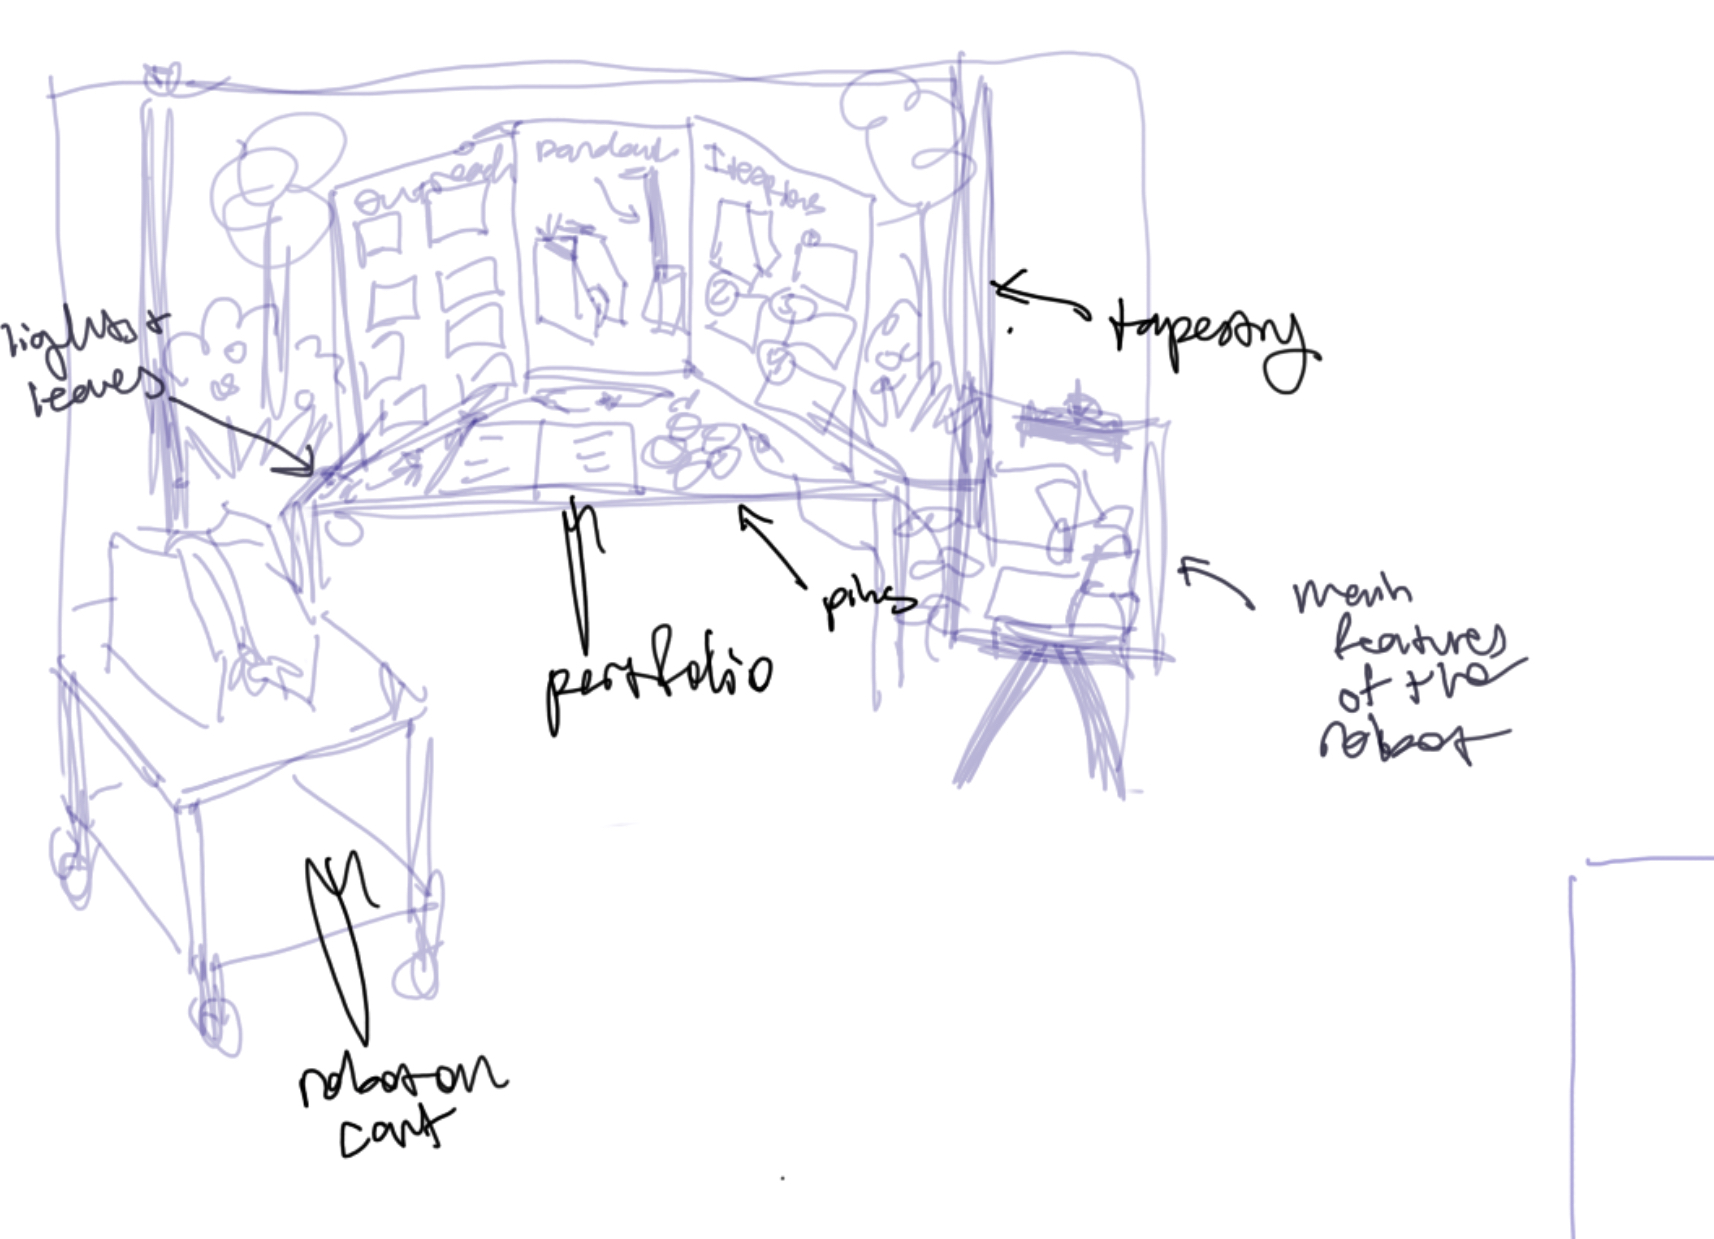 outreach
pandora
Iterations
lights +
leaves
tapestry
pins
portfolio
mesh
features
of the
robot
robot on
cart